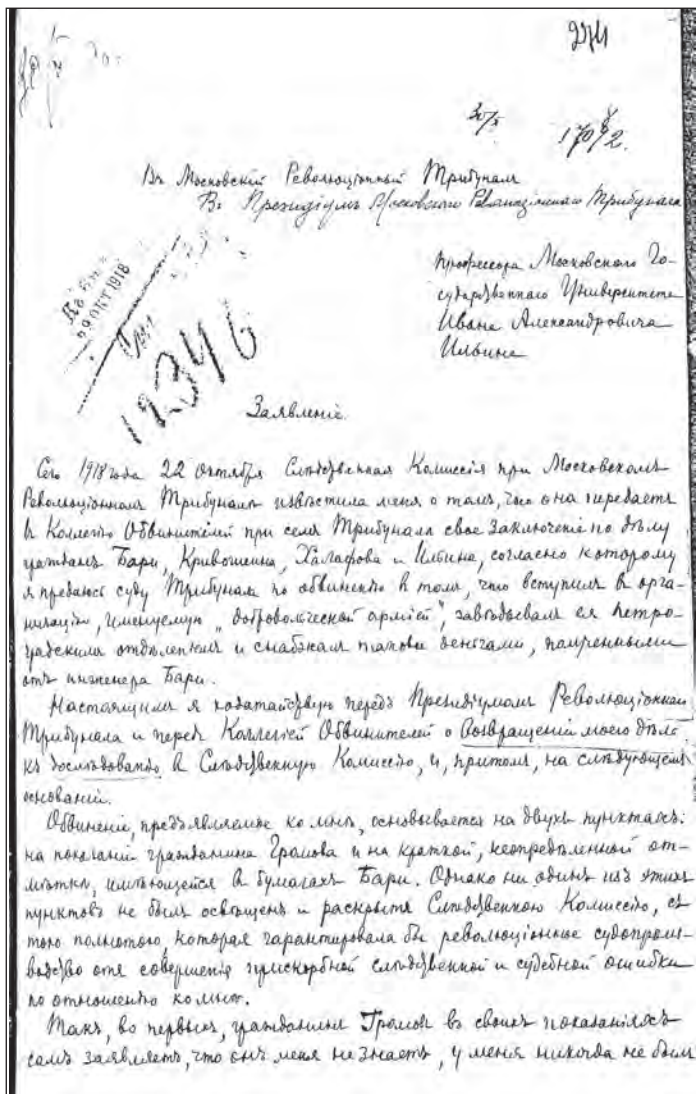 274
30/X
Въ Московскій Революціонный Трибуналъ
Въ Президіумъ Московскаго Революціоннаго Трибунала
29 ОКТ 1918
12346
Профессора Московскаго Го-
сударственнаго Университета
Ивана Александровича
Ильина
Заявленіе.
Сего 1918 года 22 октября Слѣдственная Комиссія при Московскомъ
Революціонномъ Трибуналѣ извѣстила меня о томъ, что она передаетъ
въ Коллегію Обвинителей при семъ Трибуналѣ свое заключеніе по дѣлу
гражданъ Бари, Кривошеина, Халафова и Ильина, согласно которому
я предаюсь суду Трибунала по обвиненію въ томъ, что вступилъ в орга-
низацію, именуемую „добровольческой арміей", завѣдывалъ ея петро-
градскимъ отдѣленіемъ и снабжалъ таковое деньгами, полученными
отъ инженера Бари.
Настоящимъ я ходатайствую передъ Президіумомъ Революціоннаго
Трибунала и передъ Коллегіей Обвинителей о возвращеніи моего дѣла
къ дослѣдованію в Слѣдственную Комиссію, и, притомъ, на слѣдующемъ
основаніи.
Обвиненіе, предъявляемое ко мнѣ, основывается на двухъ пунктахъ:
на показаніи гражданина Громова и на краткой, неопредѣленной от-
мѣткѣ, имѣющейся в бумагахъ Бари. Однако ни одинъ изъ этихъ
пунктовъ не былъ освѣщенъ и раскрытъ Слѣдственною Комиссіею, съ
тою полнотою, которая гарантировала бы революціонное судопроиз-
водство отъ совершенія прискорбной слѣдственной и судебной ошибки
по отношенію ко мнѣ.
Такъ, во первыхъ, гражданинъ Громов въ своихъ показаніяхъ
самъ заявляетъ, что онъ меня не знаетъ, у меня никогда не былъ